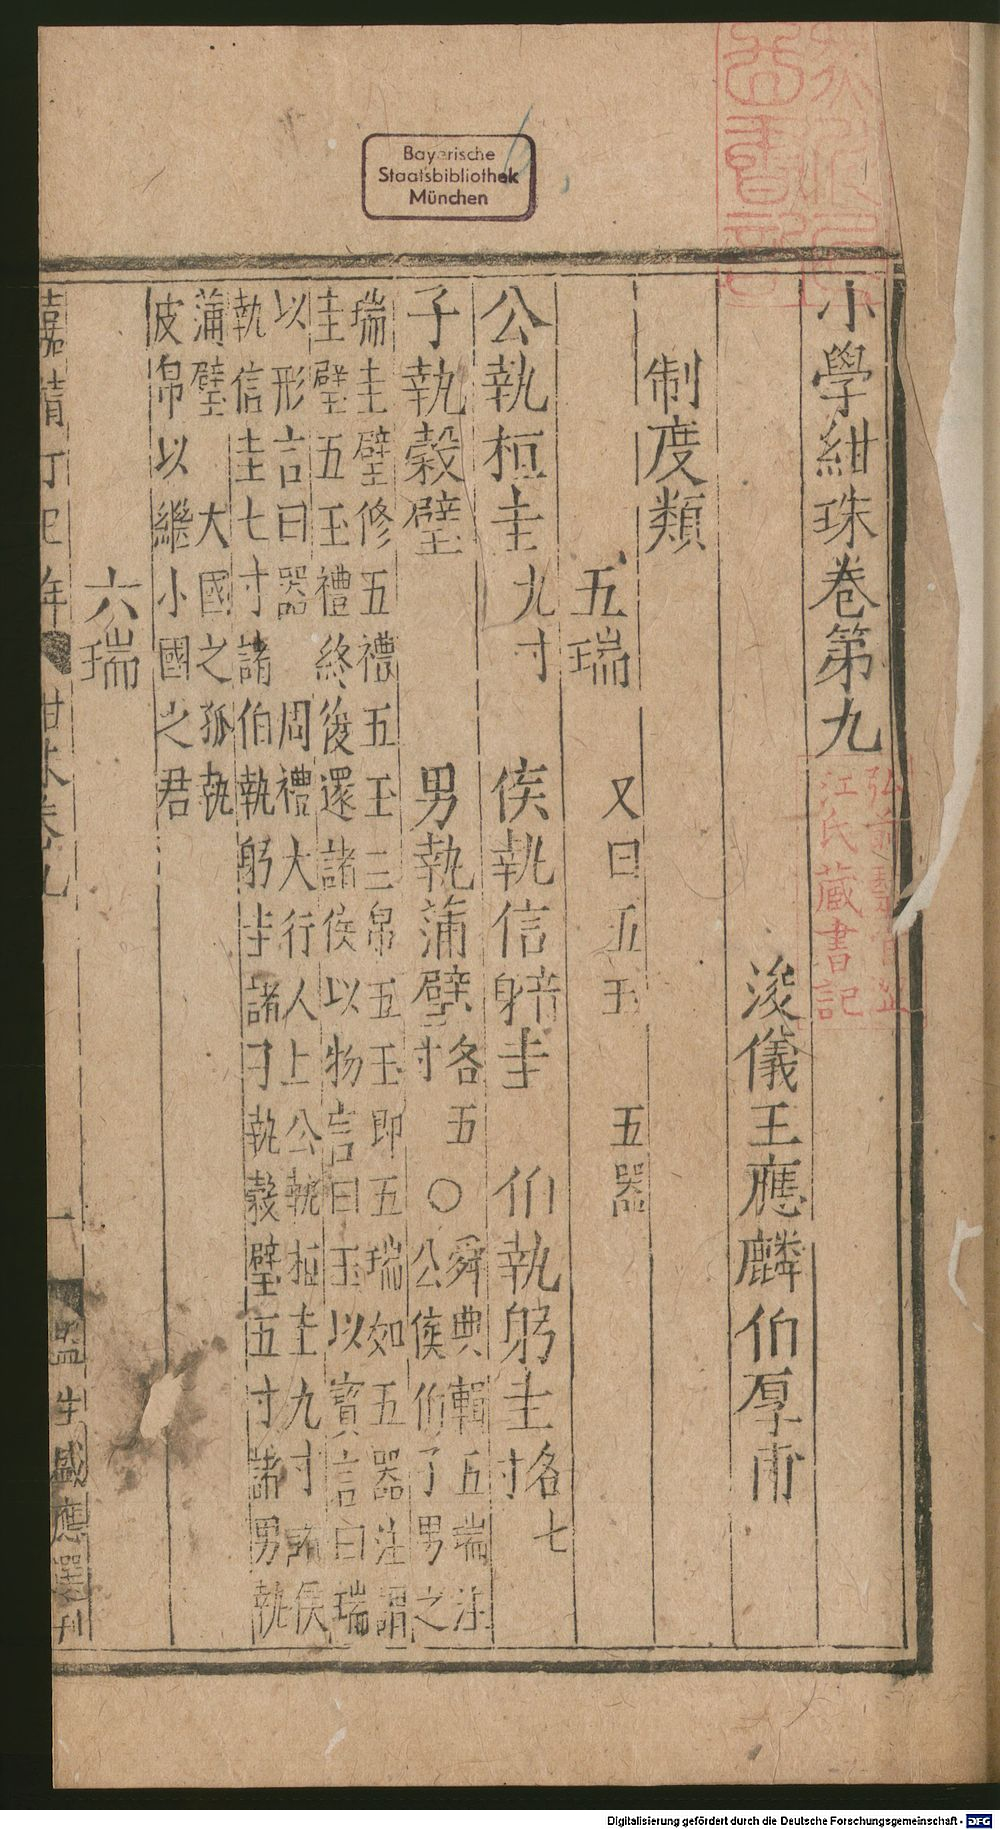 Bayerische
Staatsbibliothek
München
小學紺珠卷第九
弘前醫官澁
江氏藏書記
浚儀王應麟伯厚甫
制度類
五瑞 又曰五玉 五器
公執桓圭九寸 侯執信圭 伯執躬圭各七寸
子執穀璧 男執蒲璧各五寸○舜典輯五瑞注
公侯伯子男之
瑞圭璧修五禮五玉三帛五玉即五瑞如五器注謂
圭璧五玉禮終後還諸侯以物言曰玉以寶言曰瑞
以形言曰器 周禮大行人上公執桓圭九寸諸侯
執信圭七寸諸伯執躬圭諸子執穀璧五寸諸男執
蒲璧 大國之孤執
皮帛以繼小國之君
六瑞
嘉靖丁巳年 紺珠卷九 一 監生盛應選刊
Digitalisierung gefördert durch die Deutsche Forschungsgemeinschaft - DFG